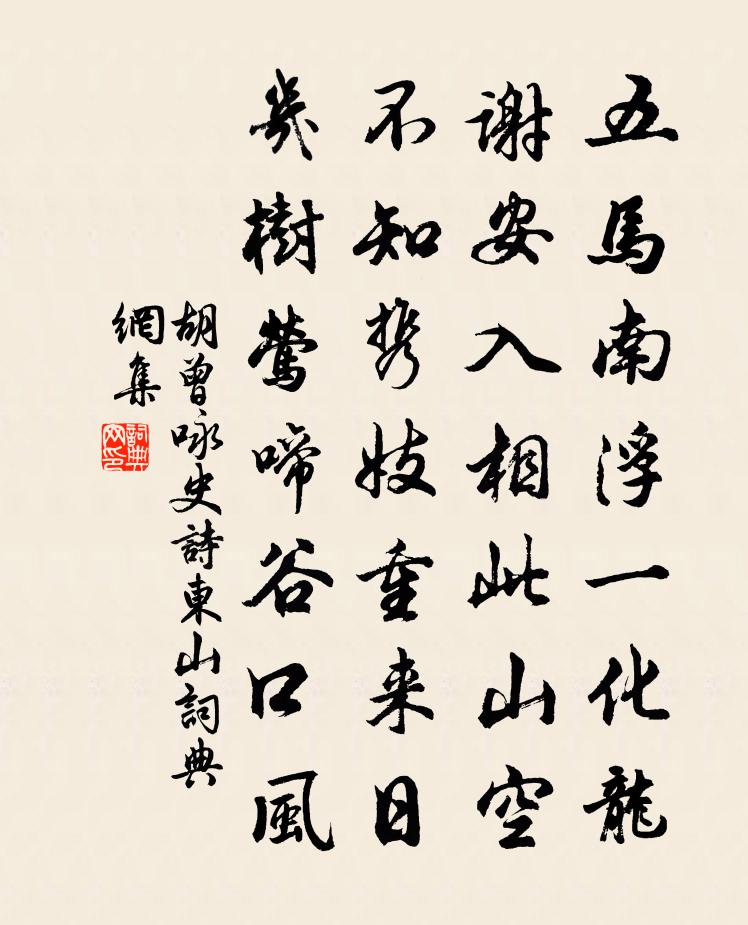 五馬南浮一化龍
謝安入相此山空
不知携妓重来日
幾樹鶯啼谷口風
胡曾咏史詩東山詞典
網集
詞典